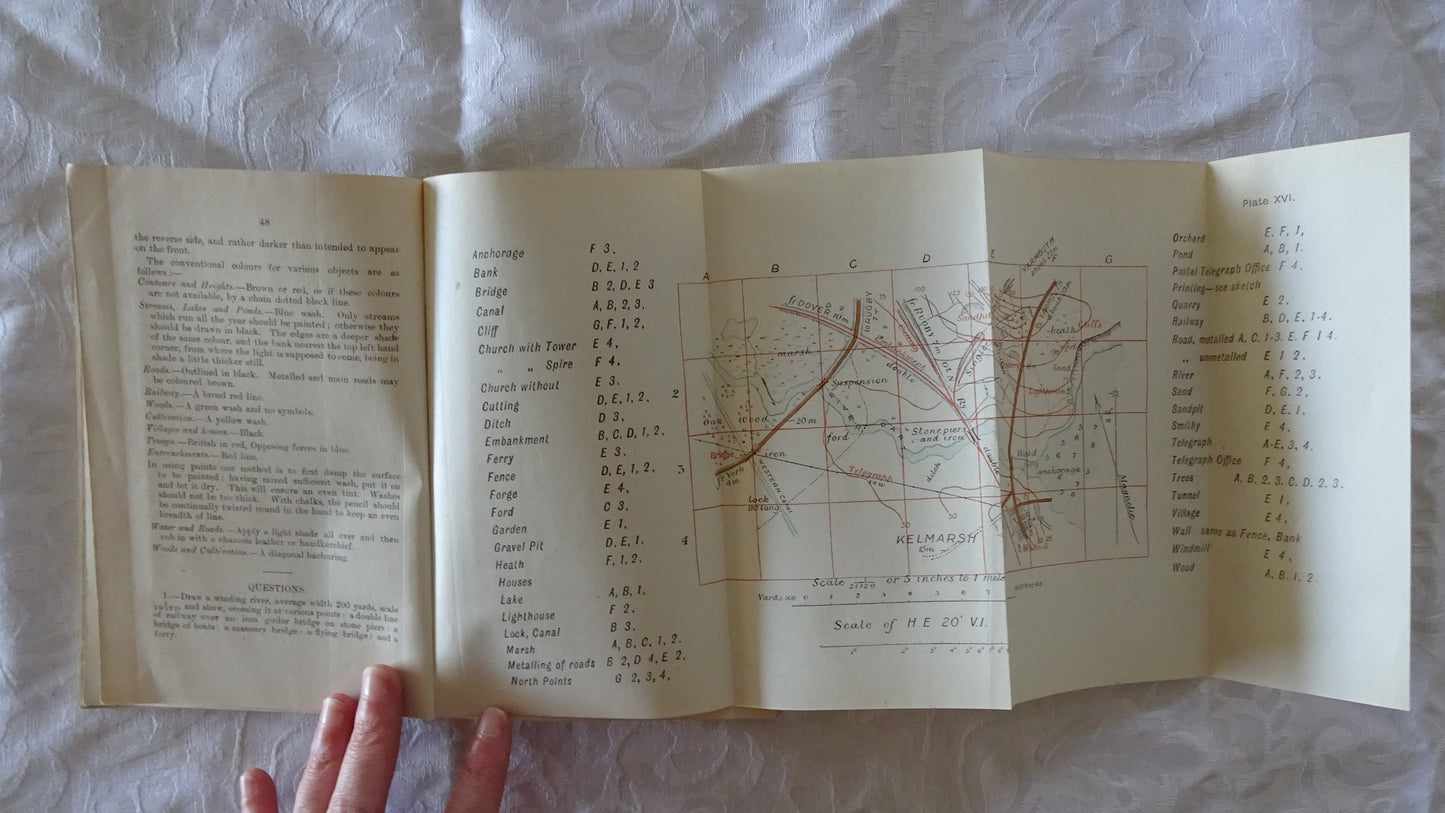 48
the reverse side, and rather darker than intended to appear
on the front.
The conventional colours for various objects are as
follows :—
Contours and Heights.—Brown or red, or if these colours
are not available, by a chain dotted black line.
Streams, Lakes and Ponds.—Blue wash. Only streams
which run all the year should be painted; otherwise they
should be drawn in black. The edges are a deeper shade
of the same colour, and the bank nearest the top left hand
corner, from where the light is supposed to come, being in
shade a little thicker still.
Roads.—Outlined in black. Metalled and main roads may
be coloured brown.
Railway.—A broad red line.
Woods.—A green wash and no symbols.
Cultivation.—A yellow wash.
Villages and houses.—Black.
Troops.—British in red, Opposing forces in blue.
Entrenchments.—Red line.
In using paints one method is to first damp the surface
to be painted; having mixed sufficient wash, put it on
and let it dry. This will ensure an even tint. Washes
should not be too thick. With chalks, the pencil should
be continually twisted round in the hand to keep an even
breadth of line.
Water and Roads.—Apply a light shade all over and then
rub in with a chamois leather or handkerchief.
Woods and Cultivation.—A diagonal hachoring.
QUESTIONS.
1.—Draw a winding river, average width 200 yards, scale
and show, crossing it at various points: a double line
of railway over an iron girder bridge on stone piers: a
bridge of boats: a masonry bridge: a flying bridge: and a
ferry.
Anchorage F 3,
Bank D, E, 1. 2
Bridge B 2, D, E 3
Canal A, B, 2, 3.
Cliff G, F. 1, 2,
Church with Tower E 4,
„ „ Spire F 4,
Church without E 3.
Cutting D, E, 1, 2.
Ditch D 3.
Embankment B, C, D, 1, 2,
Ferry E 3.
Fence D, E, 1, 2,
Forge E 4,
Ford C 3,
Garden E 1,
Gravel Pit D, E, 1.
Heath F, 1. 2.
Houses
Lake A, B, 1.
Lighthouse F 2,
Lock, Canal B 3.
Marsh A, B, C, 1, 2.
Metalling of roads B 2, D 4, E 2,
North Points G 2, 3, 4,
A B C D E G
2
3
4
fr DOVER 10m
to RUGBY 7m
fr RUGBY 7m
YARMOUTH
marsh
Embankment
double
heath
Cliffs
Sand
Lighthouse
Suspension
RIVER
Oak Wood
20 m
ford
Stone piers
and iron
Bridge
iron
fr York
4m
WESTERN CANAL
Telegraph
ditch
Wood
anchorage
Magnetic
Lock
50
50
KELMARSH
Scale 1/21120 or 3 inches to 1 mile
Yards 100 0 1 2 3 4 5 6 7 8
Scale of H.E 20' V.I.
1° 2° 3° 4° 5° 6° 7°
Plate XVI.
Orchard E. F. 1,
Pond A, B, 1.
Postel Telegraph Office F 4.
Printing—see sketch
Quarry E 2.
Railway B, D, E, 1-4.
Road, metalled A. C. 1-3. E. F 1 4.
„ unmetalled E 1 2.
River A, F. 2, 3,
Sand F, G. 2,
Sandpit D, E, 1,
Smithy E 4,
Telegraph A-E, 3, 4.
Telegraph Office F 4,
Trees A, B, 2, 3. C, D. 2, 3,
Tunnel E 1,
Village E 4,
Wall same as Fence, Bank
Windmill E 4,
Wood A. B. 1. 2.